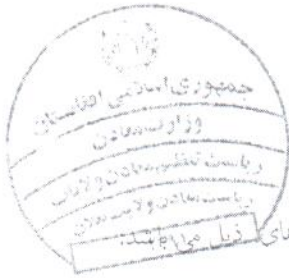 جمهوری اسلامی افغانستان
وزارت معادن
ریاست تنظیم معادن ولایات
ریاست معادن ولایت
های ذیل می باشد: